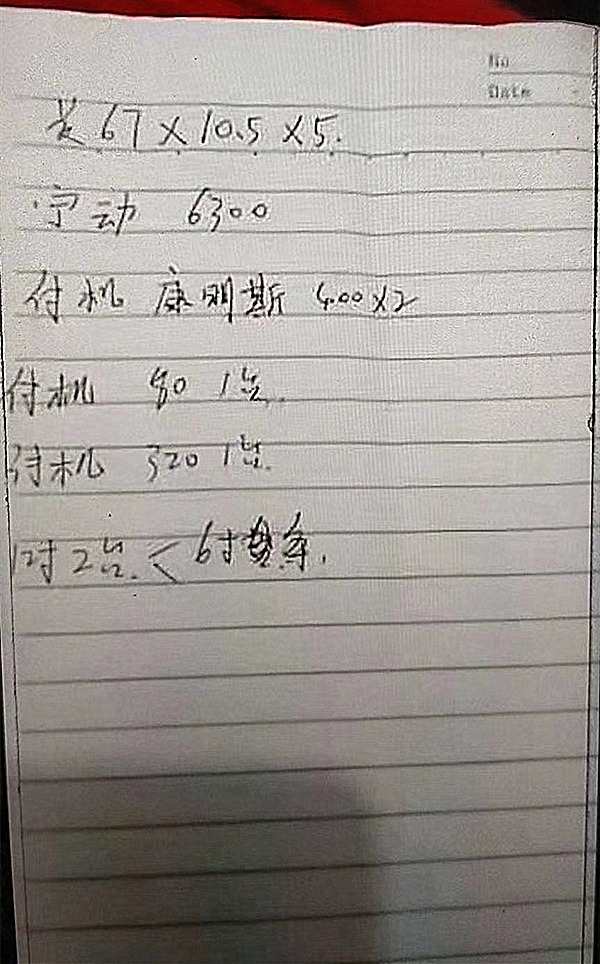 No
Date
长67×10.5×5.
宁动 6300
付机 康明斯 400×2
付机 80 1台.
付机 320 1台.
12寸2台.<6寸